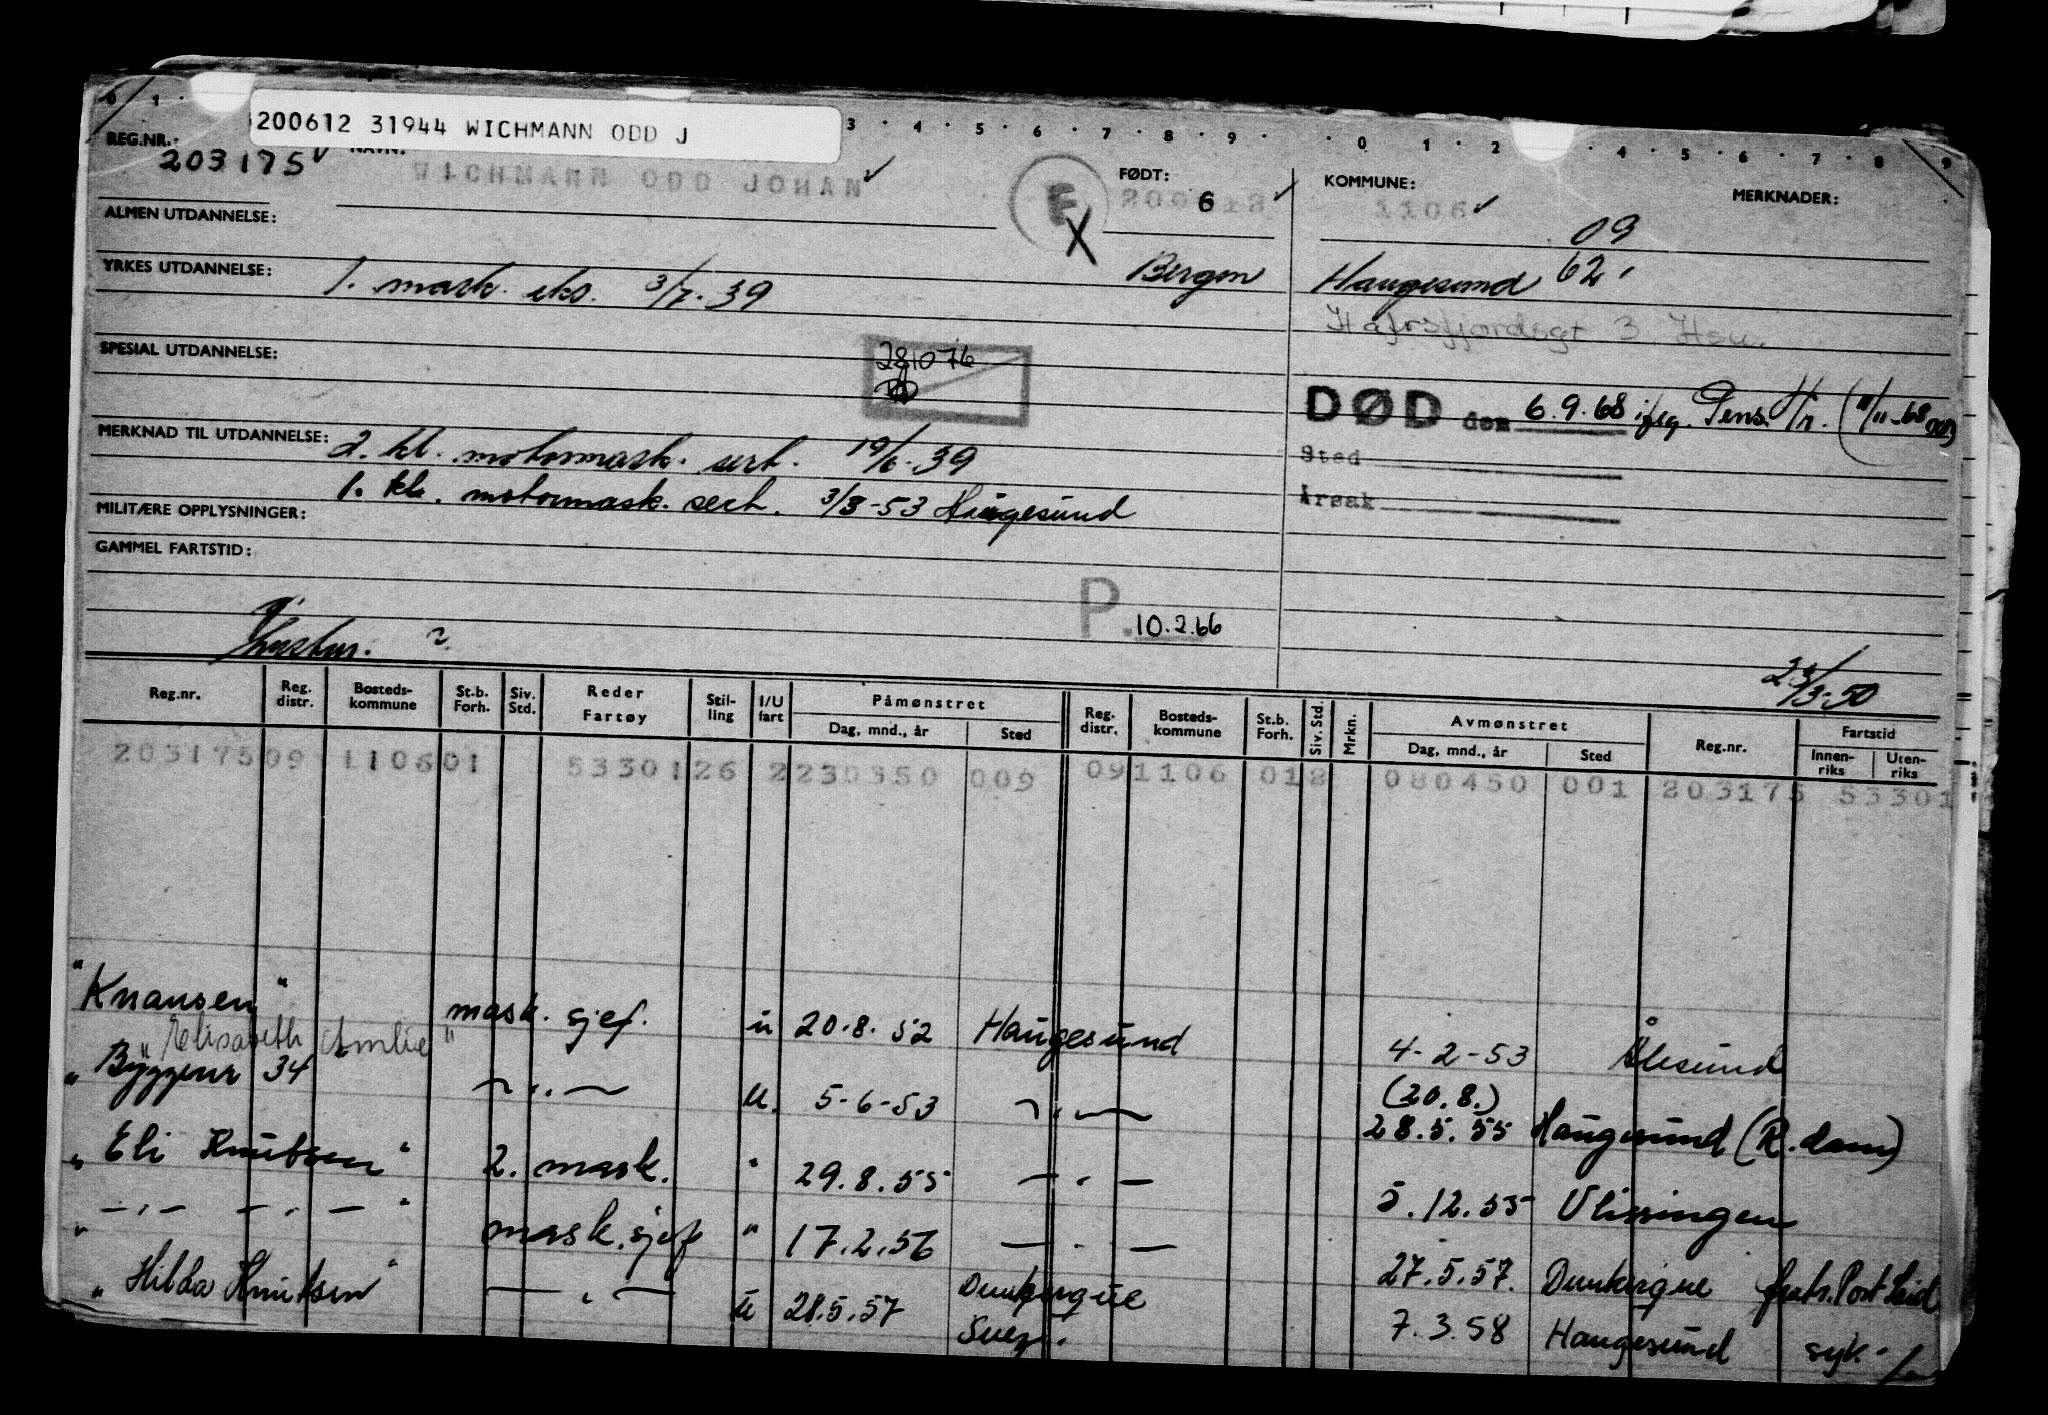 0 1 · 3 · 4 · 5 · 6 · 7 · 8 · 9 · · 0 · 1 · 2 · 4 · 5 · 6 · 7 · 8 · 9
200612 31944 WICHMANN ODD J
REG.NR.: 203175 NAVN: WICHMANN ODD JOHAN E X FØDT: 200612 6 KOMMUNE: 1106 MERKNADER:
ALMEN UTDANNELSE: 09
YRKES UTDANNELSE: 1. mask. eks. 3/7-39 Bergen Haugesund 62
Hafrsfjordsgt 3 Hsu.
SPESIAL UTDANNELSE: 281076
DØD den 6.9.68 iflg. Pens. (11/11-68)
MERKNAD TIL UTDANNELSE: 2. kl. motormask. sert. 19/6-39
Sted
1. kl. motormask. sert. 3/3-53 Haugesund
Årsak
MILITÆRE OPPLYSNINGER:
GAMMEL FARTSTID:
P. 10.2.66
?
23/3-50
Reg.nr. Reg. distr. Bosteds-kommune St.b. Forh. Siv. Std. Reder Fartøy Stil-ling I/U fart Påmønstret Dag, mnd., år Sted Reg. distr. Bosteds-kommune St.b. Forh. Siv. Std. Mrkn. Avmønstret Dag, mnd., år Sted Reg.nr. Fartstid Innen-riks Uten-riks
203175 09 1106 01 5330126 2 230350 009 09 1106 01 2 080450 001 203175 53301
"Knausen" mask. sjef. u 20.8.52 Haugesund 4-2-53 Ålesund
"Elisabeth Amlie"
"Byggenr 34 — " — u. 5-6-53 — " — (20.8.) 28.5.55 Haugesund (R.dam)
"Eli Knutsen" 2. mask. " 29.8.55 — " — 5.12.55 Vlissingen
" — " — — " — " mask.sjef " 17.2.56 — " — 27.5.57. Dunkerque fratr. Port Said
"Hilda Knutsen" — " — u 28.5.57 Dunkerque 7.3.58 Haugesund syk.
Suez.